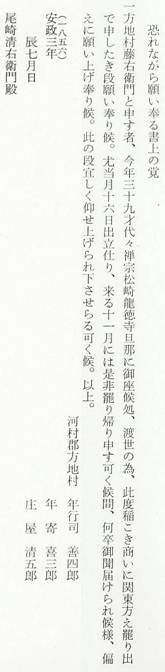 恐れながら願い奉る書上の覚
一方地村藤右衛門と申す者、今年三十九才代々禅宗松崎龍徳寺旦那に御座候処、渡世の為、此度稲こき商いに関東方え罷り出
で申したき段願い奉り候。尤当月十六日出立仕り、来る十一月には是非罷り帰り申す可く候間、何卒御聞届けられ候様、偏
えに願い上げ奉り候。此の段宜しく仰せ上げられ下させらる可く候。以上。
河村郡方地村
年行司 善四郎
年寄 喜三郎
庄屋 清五郎
(一八五六)
安政三年
辰七月日
尾崎清右衛門殿